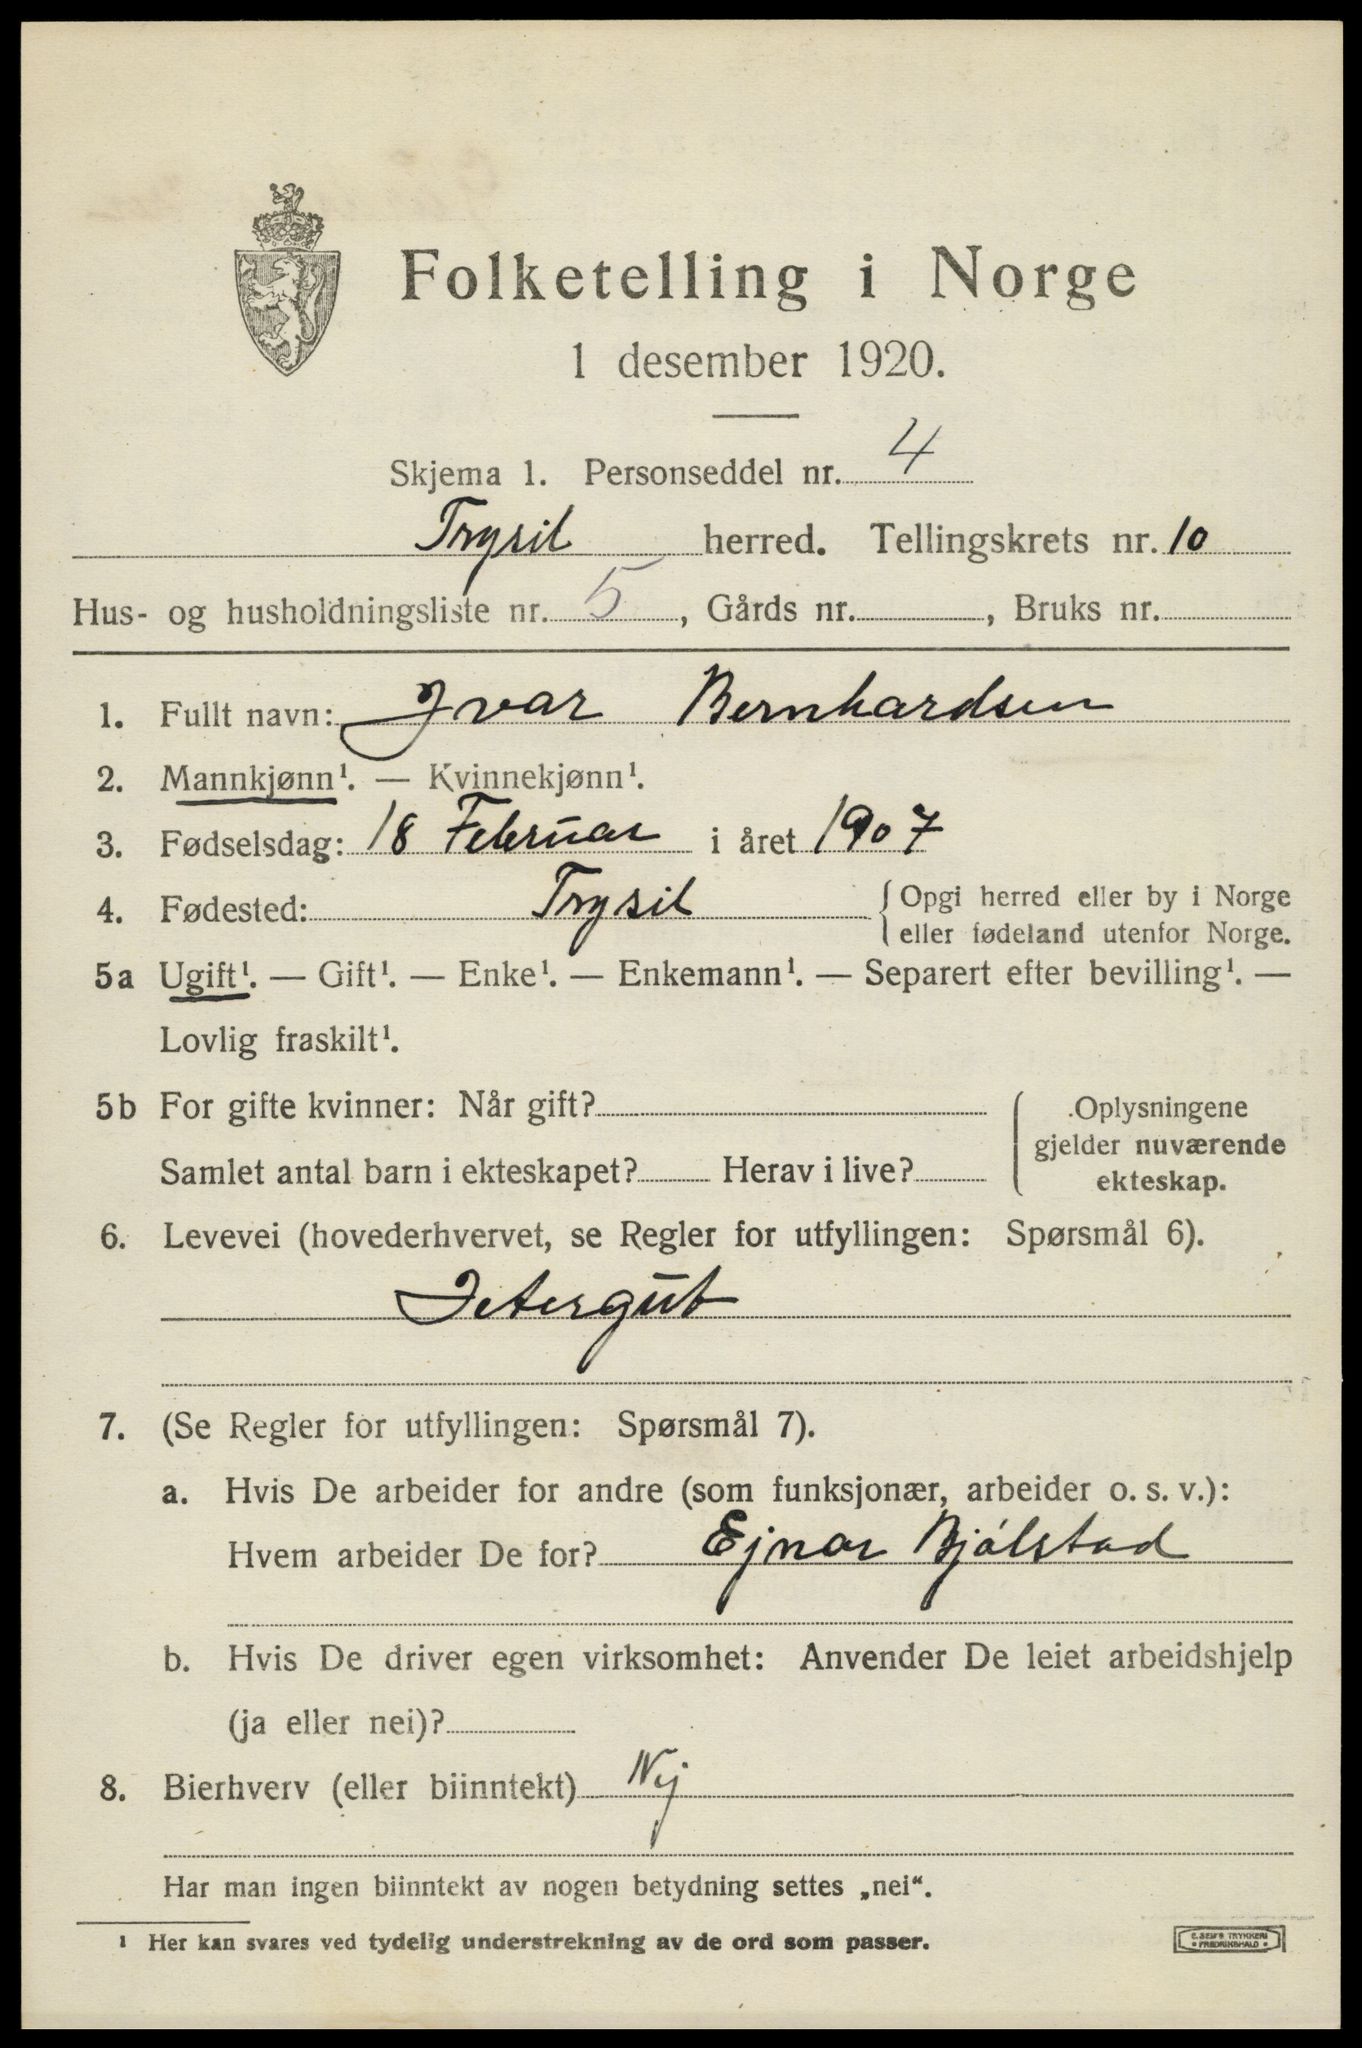 Folketelling i Norge
1 desember 1920.
Skjema 1. Personseddel nr. 4
Trysil herred. Tellingskrets nr. 10
Hus- og husholdningsliste nr. 5, Gårds nr. , Bruks nr.
1. Fullt navn: Ivar Bernhardsen
2. Mannkjønn¹. — Kvinnekjønn¹.
3. Fødselsdag: 18 Februar i året 1907
4. Fødested: Trysil { Opgi herred eller by i Norge
eller fødeland utenfor Norge.
5a Ugift¹. — Gift¹. — Enke¹. — Enkemann¹. — Separert efter bevilling¹. —
Lovlig fraskilt¹.
5b For gifte kvinner: Når gift?
Samlet antal barn i ekteskapet? Herav i live?
{ Oplysningene
gjelder nuværende
ekteskap.
6. Levevei (hovederhvervet, se Regler for utfyllingen: Spørsmål 6).
Jetergut
7. (Se Regler for utfyllingen: Spørsmål 7).
a. Hvis De arbeider for andre (som funksjonær, arbeider o. s. v.):
Hvem arbeider De for? Ejnar Bjølstad
b. Hvis De driver egen virksomhet: Anvender De leiet arbeidshjelp
(ja eller nei)?
8. Bierhverv (eller biinntekt) Nej
Har man ingen biinntekt av nogen betydning settes „nei“.
¹ Her kan svares ved tydelig understrekning av de ord som passer.
E. SEM'S TRYKKERI
• FREDRIKSHALD •